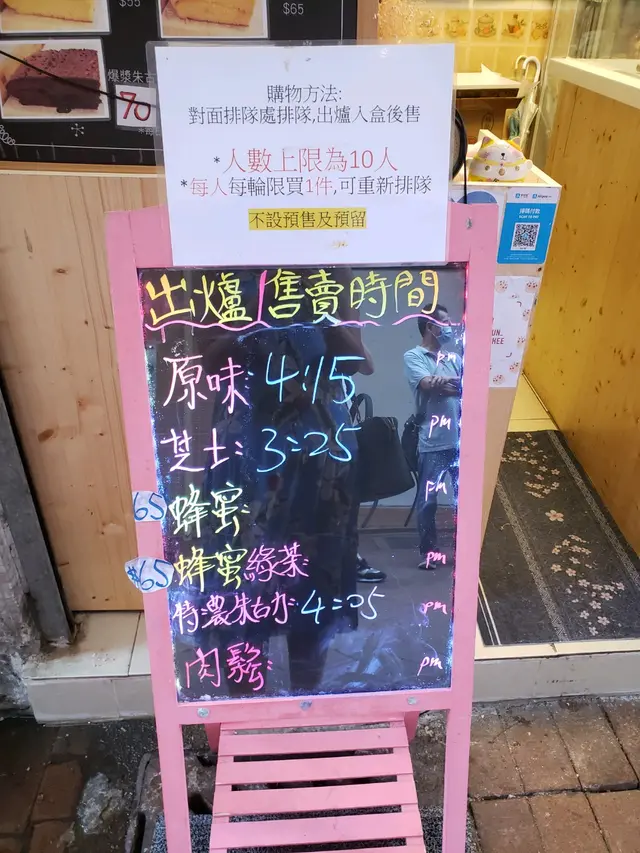 $55
$65
爆漿朱古
70
購物方法:
對面排隊處排隊,出爐入盒後售
*人數上限為10人
*每人每輪限買1件,可重新排隊
不設預售及預留
出爐/售賣時間
原味: 4:15 pm
芝士: 3:25 pm
65 蜂蜜: pm
$65 蜂蜜綠茶: pm
特濃朱古力: 4:05 pm
肉鬆: pm